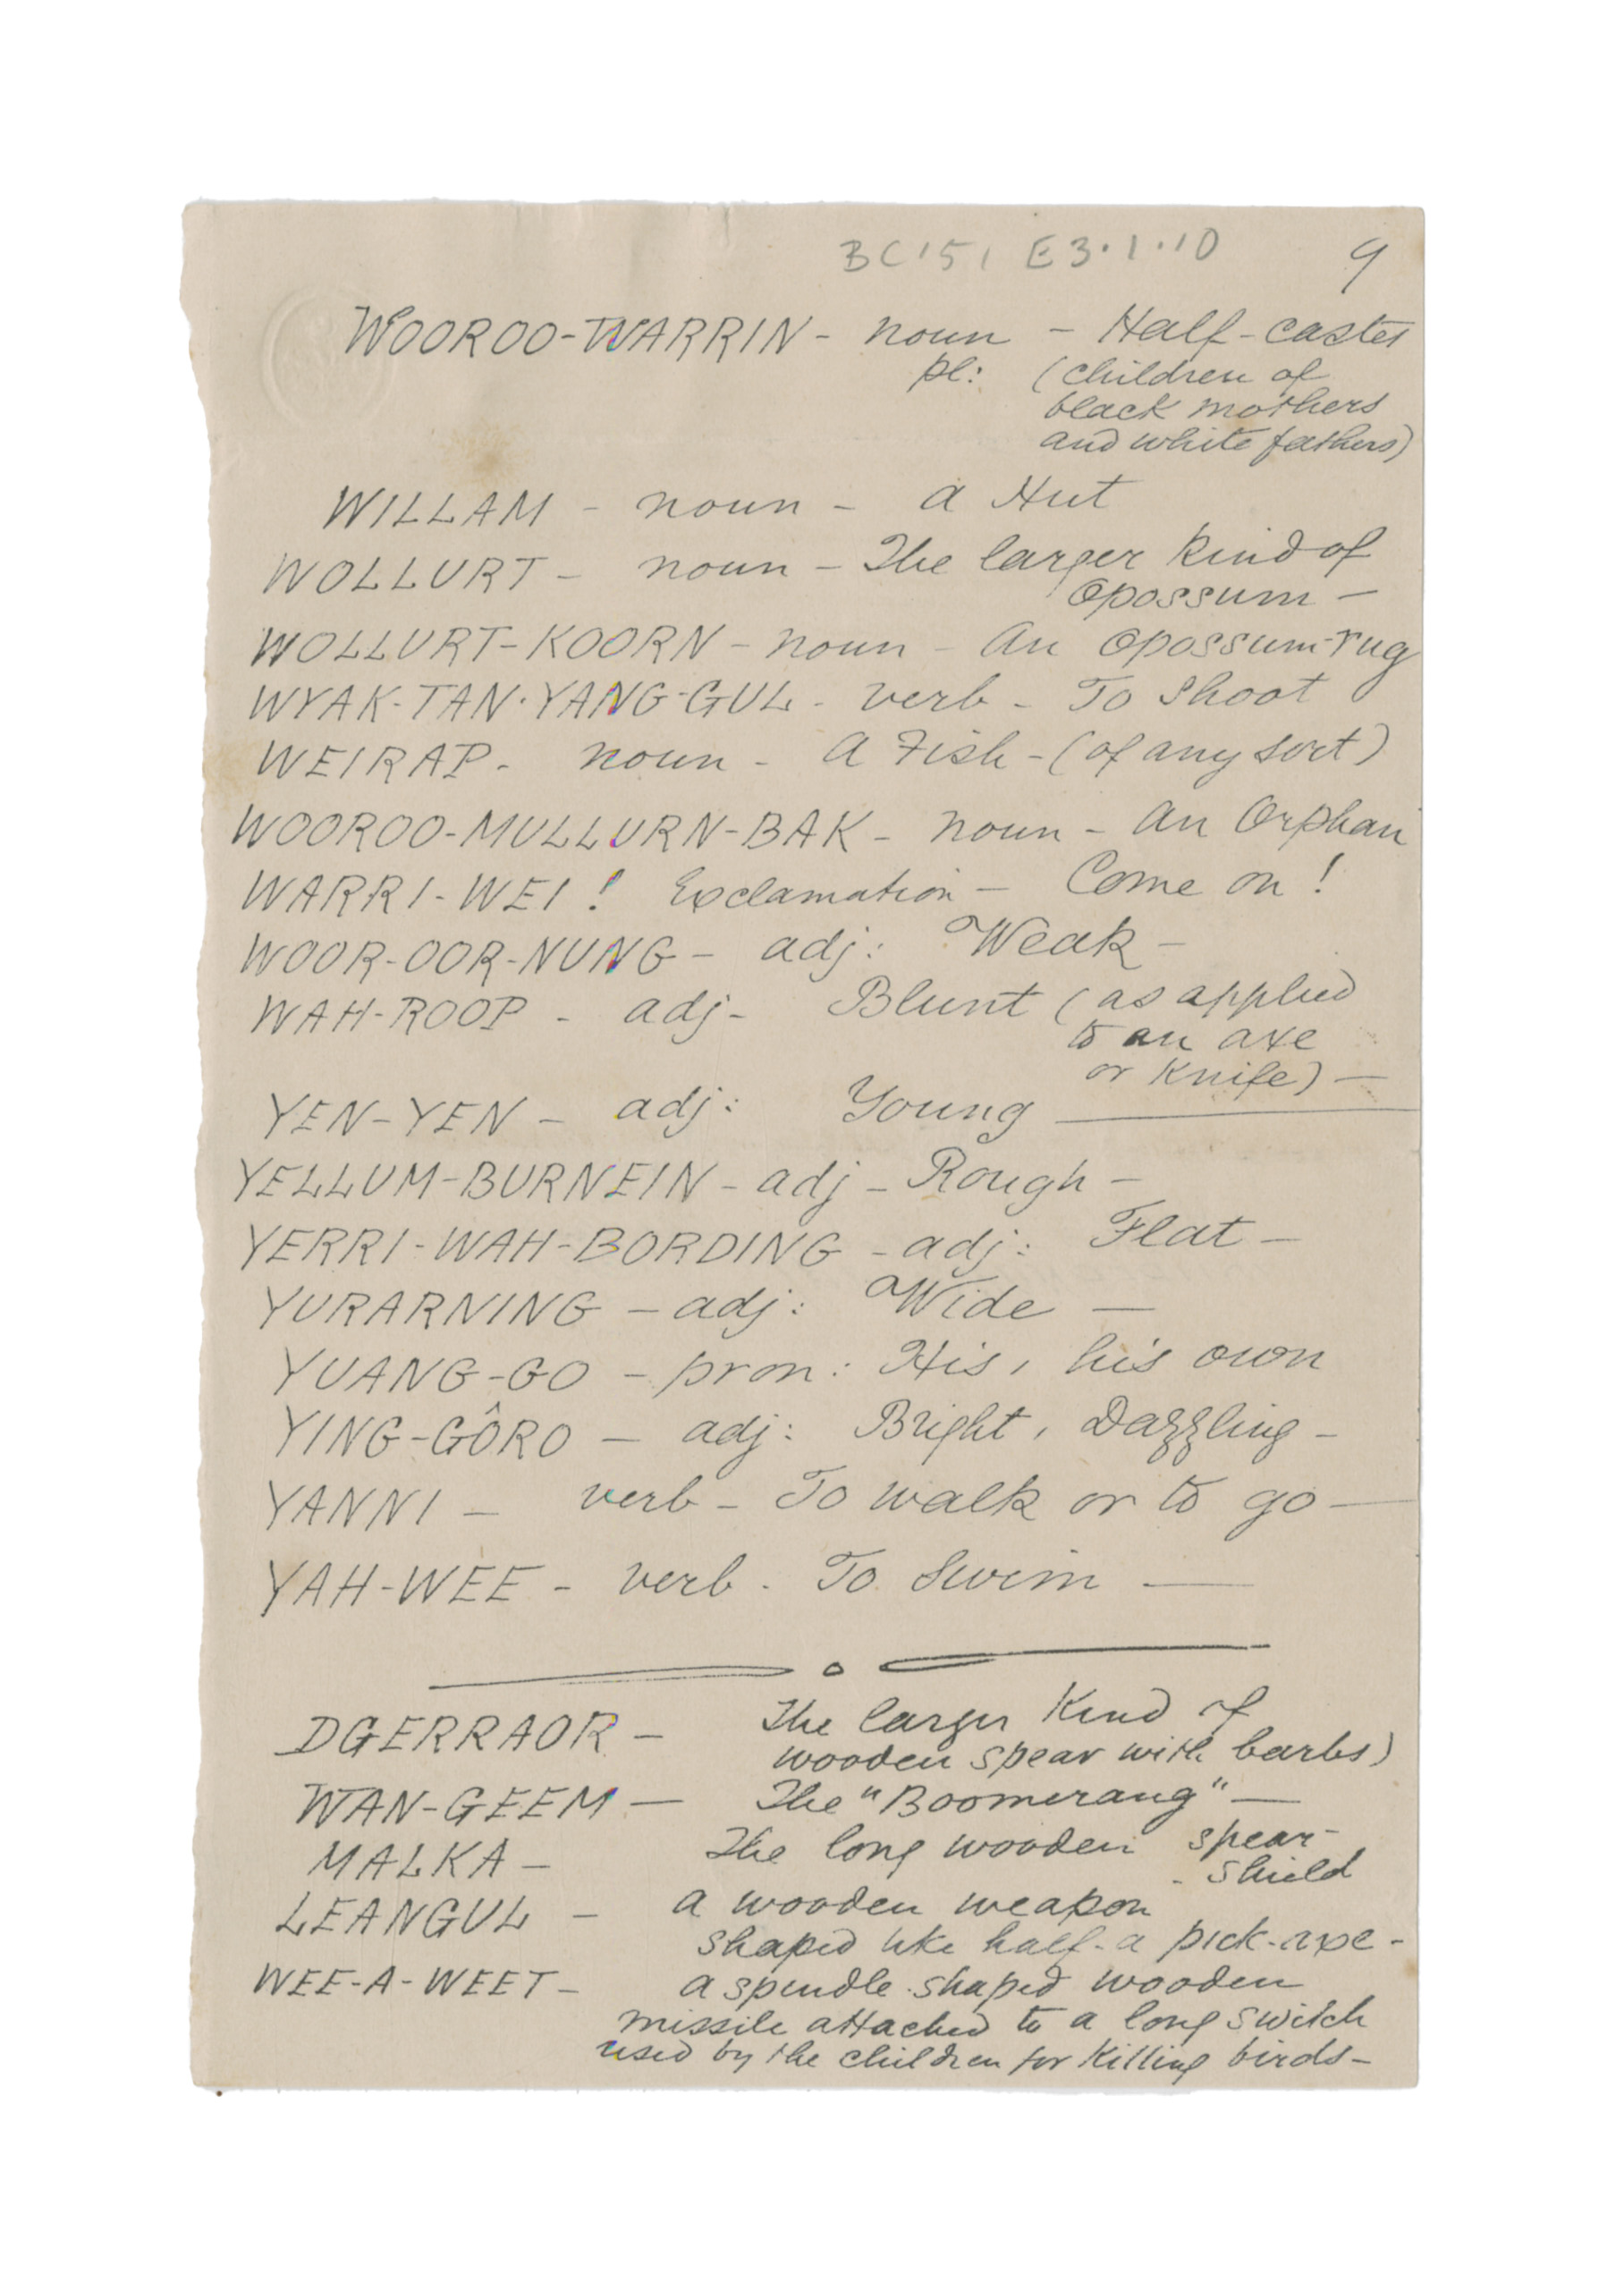 BC151 E3.1.10 9
WOOROO-WARRIN - noun - Half-castes
pl: (children of
black mothers
and white fathers)
WILLAM - noun - a Hut
WOLLURT - noun - The larger kind of
opossum -
WOLLURT-KOORN - noun - An opossum-rug
WYAK-TAN-YANG-GUL - verb - To Shoot
WEIRAP - noun - A Fish - (of any sort)
WOOROO-MULLURN-BAK - noun - An Orphan
WARRI-WEI! Exclamation - Come on!
WOOR-OOR-NUNG - adj: Weak -
WAH-ROOP - adj - Blunt (as applied
to an axe
or knife) -
YEN-YEN - adj: Young
YELLUM-BURNEIN - adj - Rough -
YERRI-WAH-BORDING - adj: Flat -
YURARNING - adj: Wide -
YUANG-GO - pron: His, his own
YING-GÔRO - adj: Bright, Dazzling -
YANNI - verb - To walk or to go -
YAH-WEE - verb - To Swim -
DGERRAOR - The larger kind of
wooden spear with barbs)
WAN-GEEM - The "Boomerang" -
MALKA - The long wooden spear-
- shield
LEANGUL - a wooden weapon
shaped like half-a pick-axe -
WEE-A-WEET - a spindle-shaped wooden
missile attached to a long switch
used by the children for killing birds -